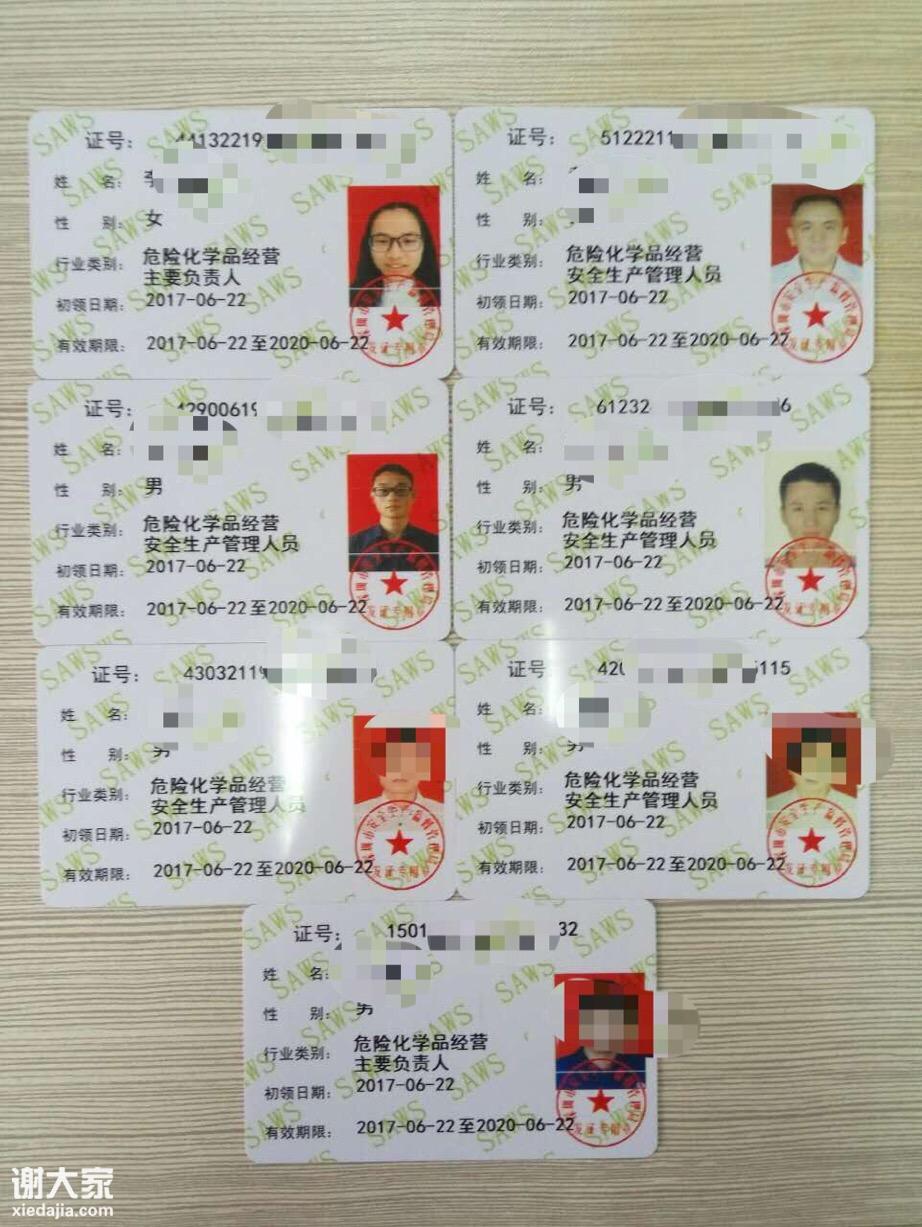 证号： 44132219
姓 名： 李
性 别： 女
行业类别： 危险化学品经营
主要负责人
初领日期： 2017-06-22
有效期限： 2017-06-22至2020-06-22
证号： 5122211
姓 名：
性 别：
行业类别： 危险化学品经营
安全生产管理人员
初领日期： 2017-06-22
有效期限： 2017-06-22至2020-06-22
证号： 42900619
姓 名：
性 别： 男
行业类别： 危险化学品经营
安全生产管理人员
初领日期： 2017-06-22
有效期限： 2017-06-22至2020-06-22
证号： 61232 6
姓 名：
性 别： 男
行业类别： 危险化学品经营
安全生产管理人员
初领日期： 2017-06-22
有效期限： 2017-06-22至2020-06-22
证号： 43032119
姓 名：
性 别： 男
行业类别： 危险化学品经营
安全生产管理人员
初领日期： 2017-06-22
有效期限： 2017-06-22至2020-06-22
证号： 420 5115
姓 名：
性 别： 男
行业类别： 危险化学品经营
安全生产管理人员
初领日期： 2017-06-22
有效期限： 2017-06-22至2020-06-22
证号： 1501 32
姓 名：
性 别： 男
行业类别： 危险化学品经营
主要负责人
初领日期： 2017-06-22
有效期限： 2017-06-22至2020-06-22
SAWS
谢大家
xiedajia.com